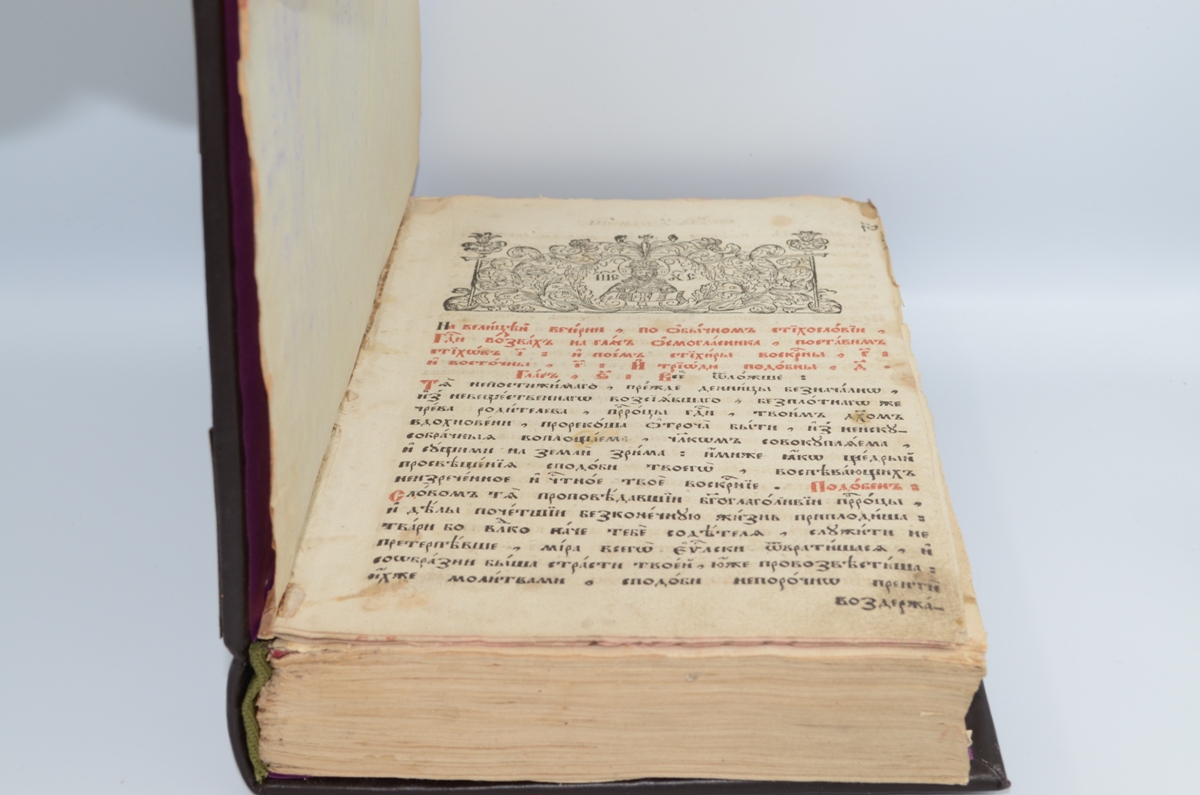 І҆И҃С Х҃С
На вели́цѣй вече́рни , по ѻ҆бы́чномъ стїхосло́вїи ,
Гдⷭ҇и возва́хъ на гла́съ ѻ҆смогла́сника , поста́вимъ
стїхѡ́въ і҃ : и҆ пое́мъ стїхи́ры воскрⷭ҇ны ,
и҆ восто́чны , И҆ трїѡ́ди подо́бны , д҃ .
Гла́съ , Всѐ ѿло́жше :
Тѧ̀ непостижи́маго , пре́жде денни́цы безнача́лнѡ ,
и҆з̾ невеще́ственнагѡ возсїѧ́вшаго , безпло́тнагѡ же
чре́ва роди́телева , прⷪ҇ро́цы гдⷭ҇и , твои́мъ дх҃омъ
вдохнове́ни , прореко́ша ѻ҆троча̀ бы́ти , и҆з̾ неиску-
собра́чныѧ воплоща́ема , чл҃кѡмъ совокуплѧ́ема ,
и҆ су́щими на землѝ зри́ма : и҆́миже ꙗ҆́кѡ ще́дрый
просвѣще́нїѧ сподо́би твоегѡ̀ , воспѣва́ющихъ
неизрече́нное и҆ чⷭ҇тно́е твоѐ воскрⷭ҇нїе . Подо́бенъ :
Сло́вомъ тѧ̀ проповѣ́давшїи бг҃оглаго́ливїи прⷪ҇ро́цы ,
и҆ дѣ́лы поче́тшїи безконе́чную жи́знь приплоди́ша :
тва́ри бо влⷣко па́че тебѐ содѣ́телѧ , служи́ти не
претерпѣ́вше , мі́ра всегѡ̀ є҆ѵⷢ҇лски ѿврати́шасѧ , и҆
соѡбра́зни бы́ша стра́сти твое́й , ю҆́же провозвѣсти́ша :
и҆́хже моли́твами , сподо́би непоро́чнѡ прейтѝ
воздержа́-